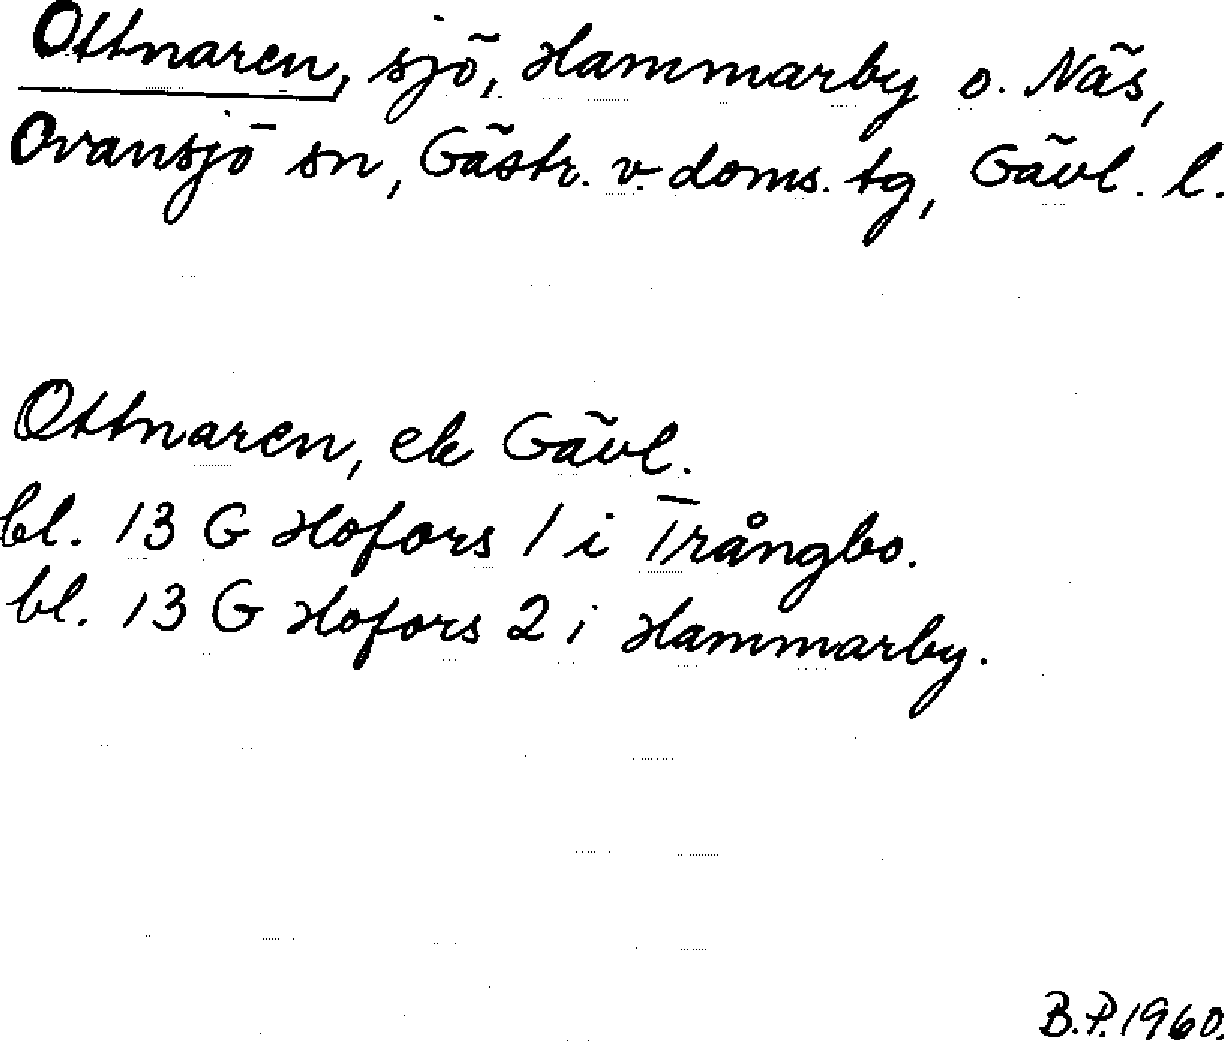 Ottnaren, sjö, Hammarby o. Näs,
Ovansjö sn, Gästr. v. doms. tg, Gävl. l.
Ottnaren, ek Gävl.
bl. 13 G Hofors 1 i Trångbo.
bl. 13 G Hofors 2 i Hammarby.
B.P. 1960.